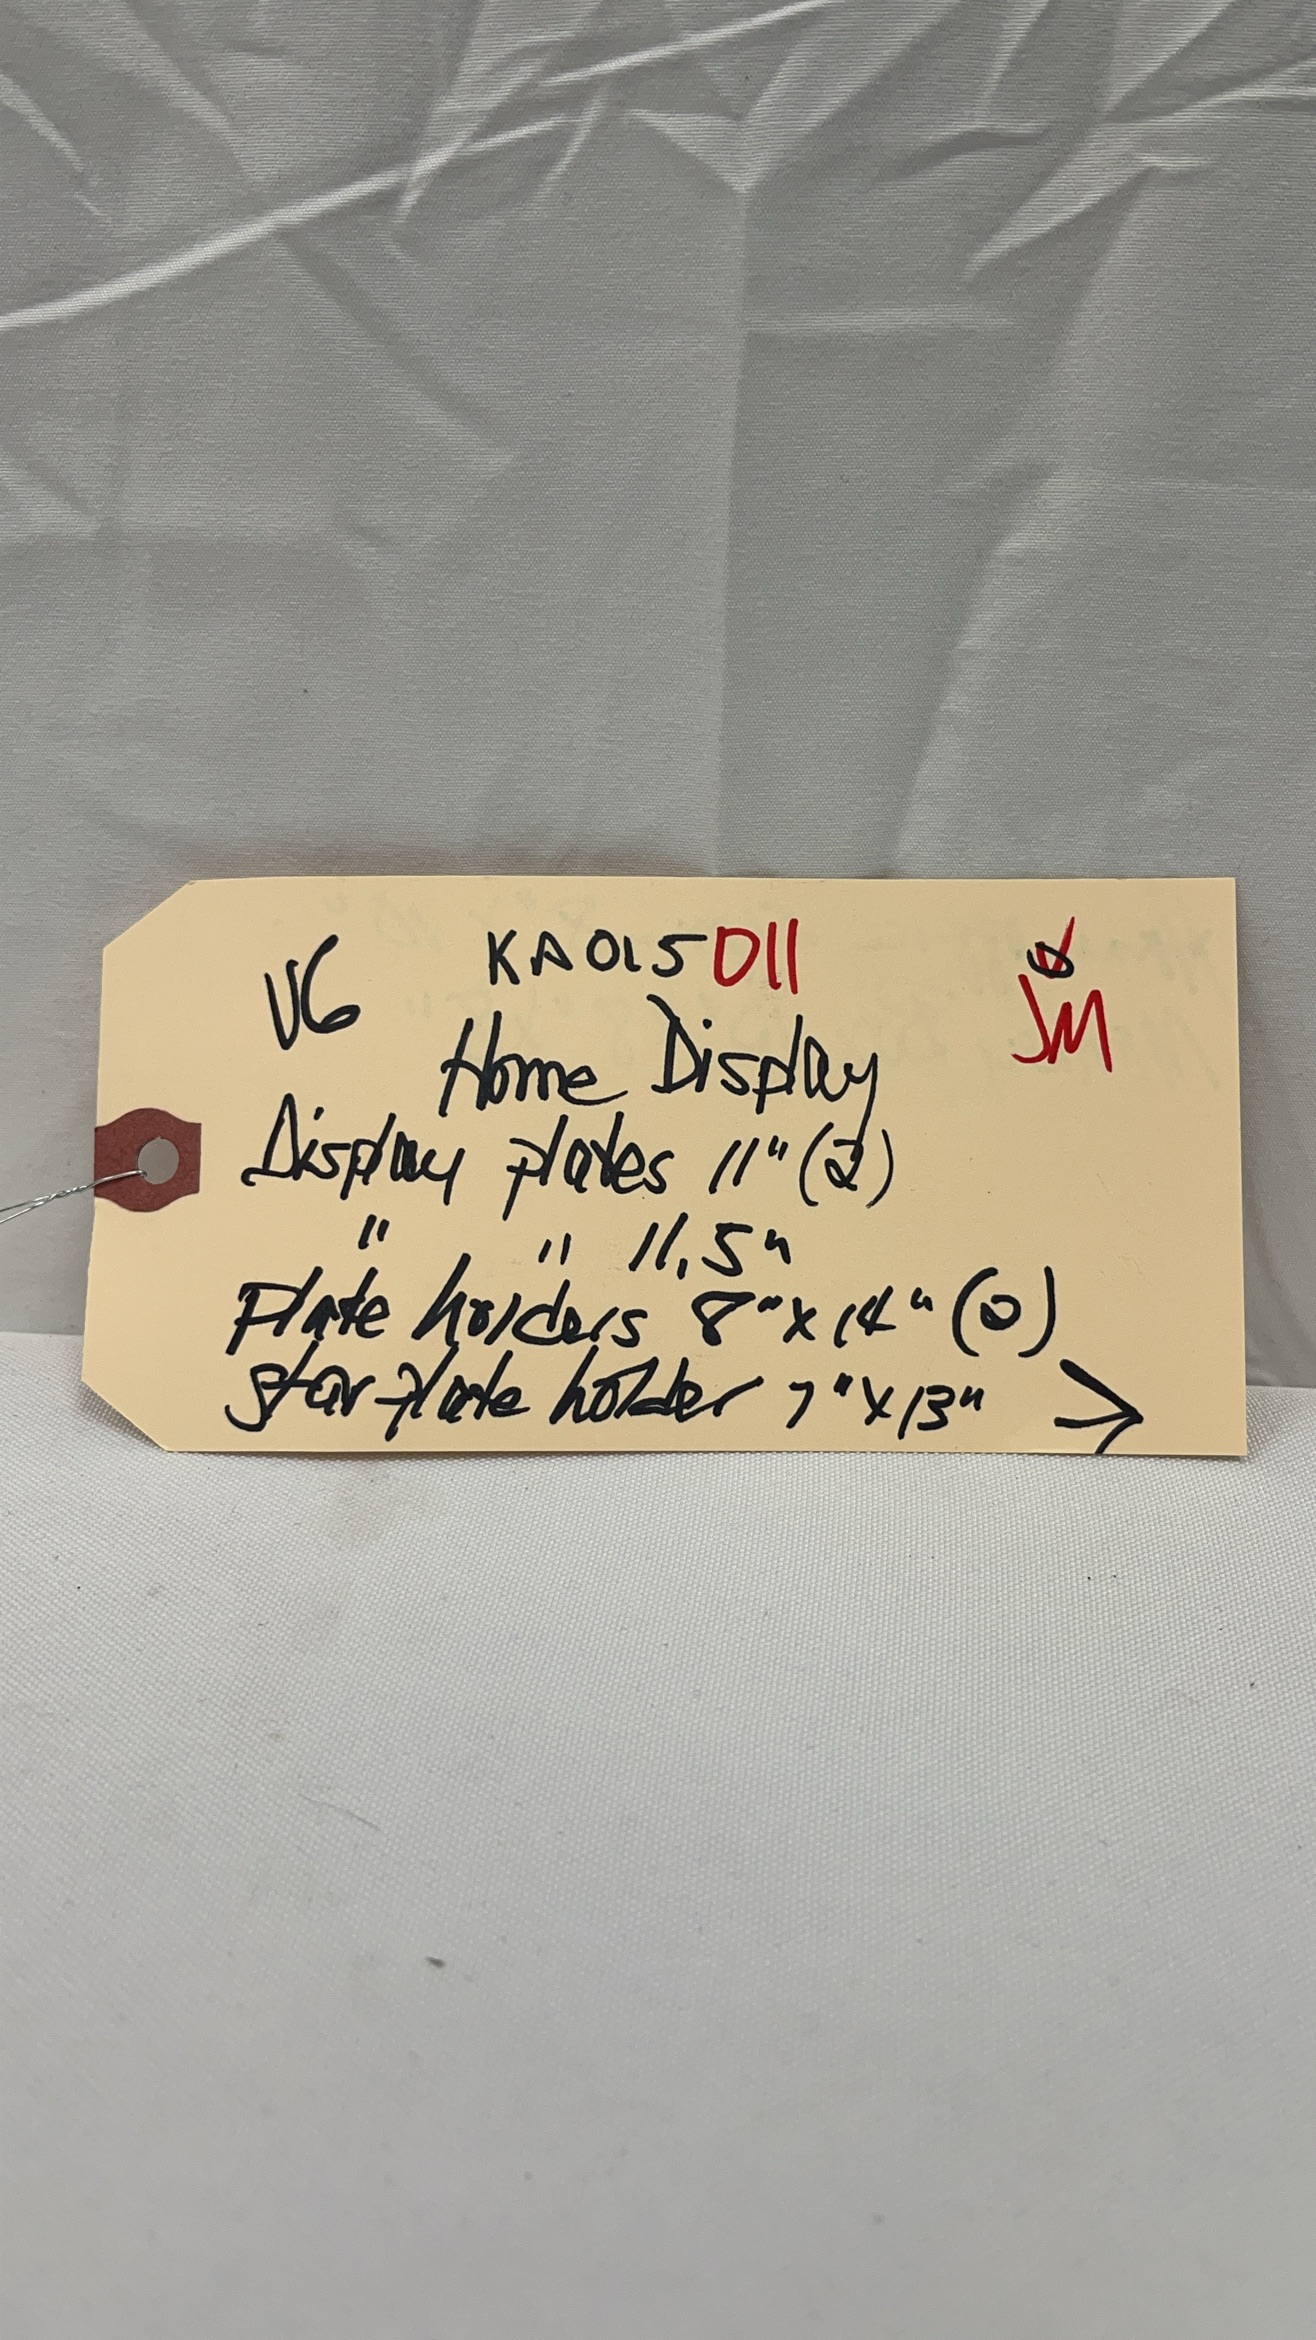 KA015D11
V6
JM
Home Display
Display plates 11" (2)
" " 11.5"
Plate holders 8" x 14" (2)
Star plate holder 7" x 13" >